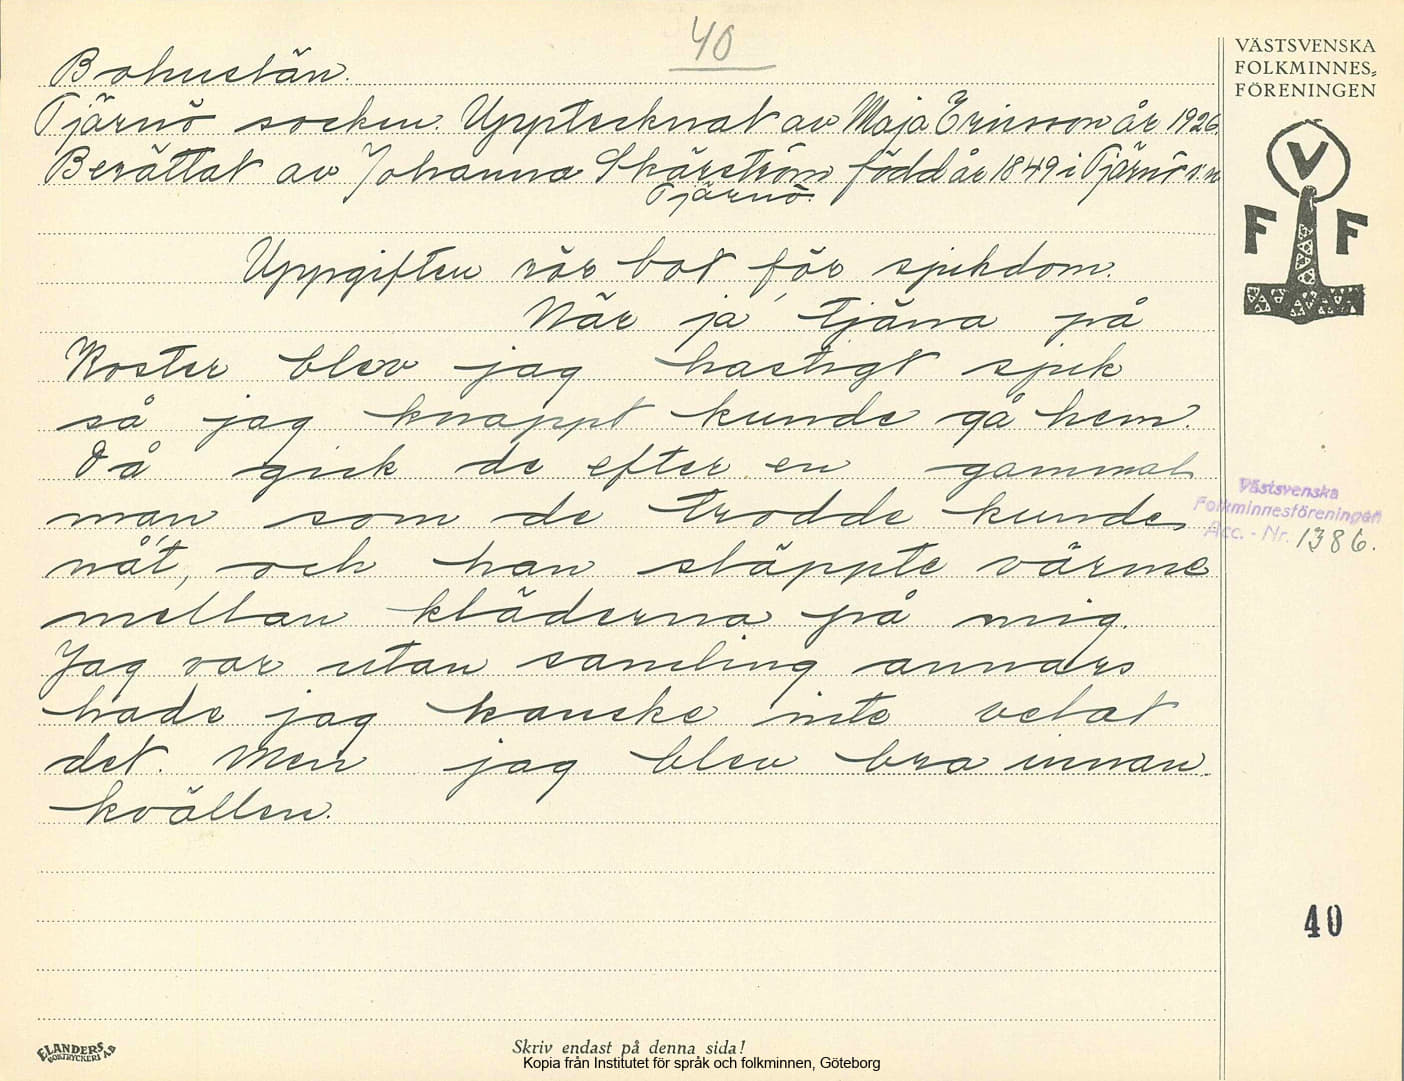 40
Bohuslän.
Tjärnö socken. Upptecknat av Maja Ericsson år 1926.
Berättat av Johanna Skärström född år 1849 i Tjärnö s:n
Tjärnö.
Uppgiften rör bot för sjukdom.
När ja' tjäna på
Koster blev jag hastigt sjuk
så jag knappt kunde gå hem.
Då gick de efter en gammal
man som de trodde kunde
nå't, och han släppte värme
mellan kläderna på mig.
Jag var utan samling annars
hade jag kanske inte velat
det. Men jag blev bra innan
kvällen.
VÄSTSVENSKA
FOLKMINNES=
FÖRENINGEN
V
F F
Västsvenska
Folkminnesföreningen
Acc. - Nr. 1386.
40
ELANDERS
BOKTRYCKERI A.B
Skriv endast på denna sida!
Kopia från Institutet för språk och folkminnen, Göteborg